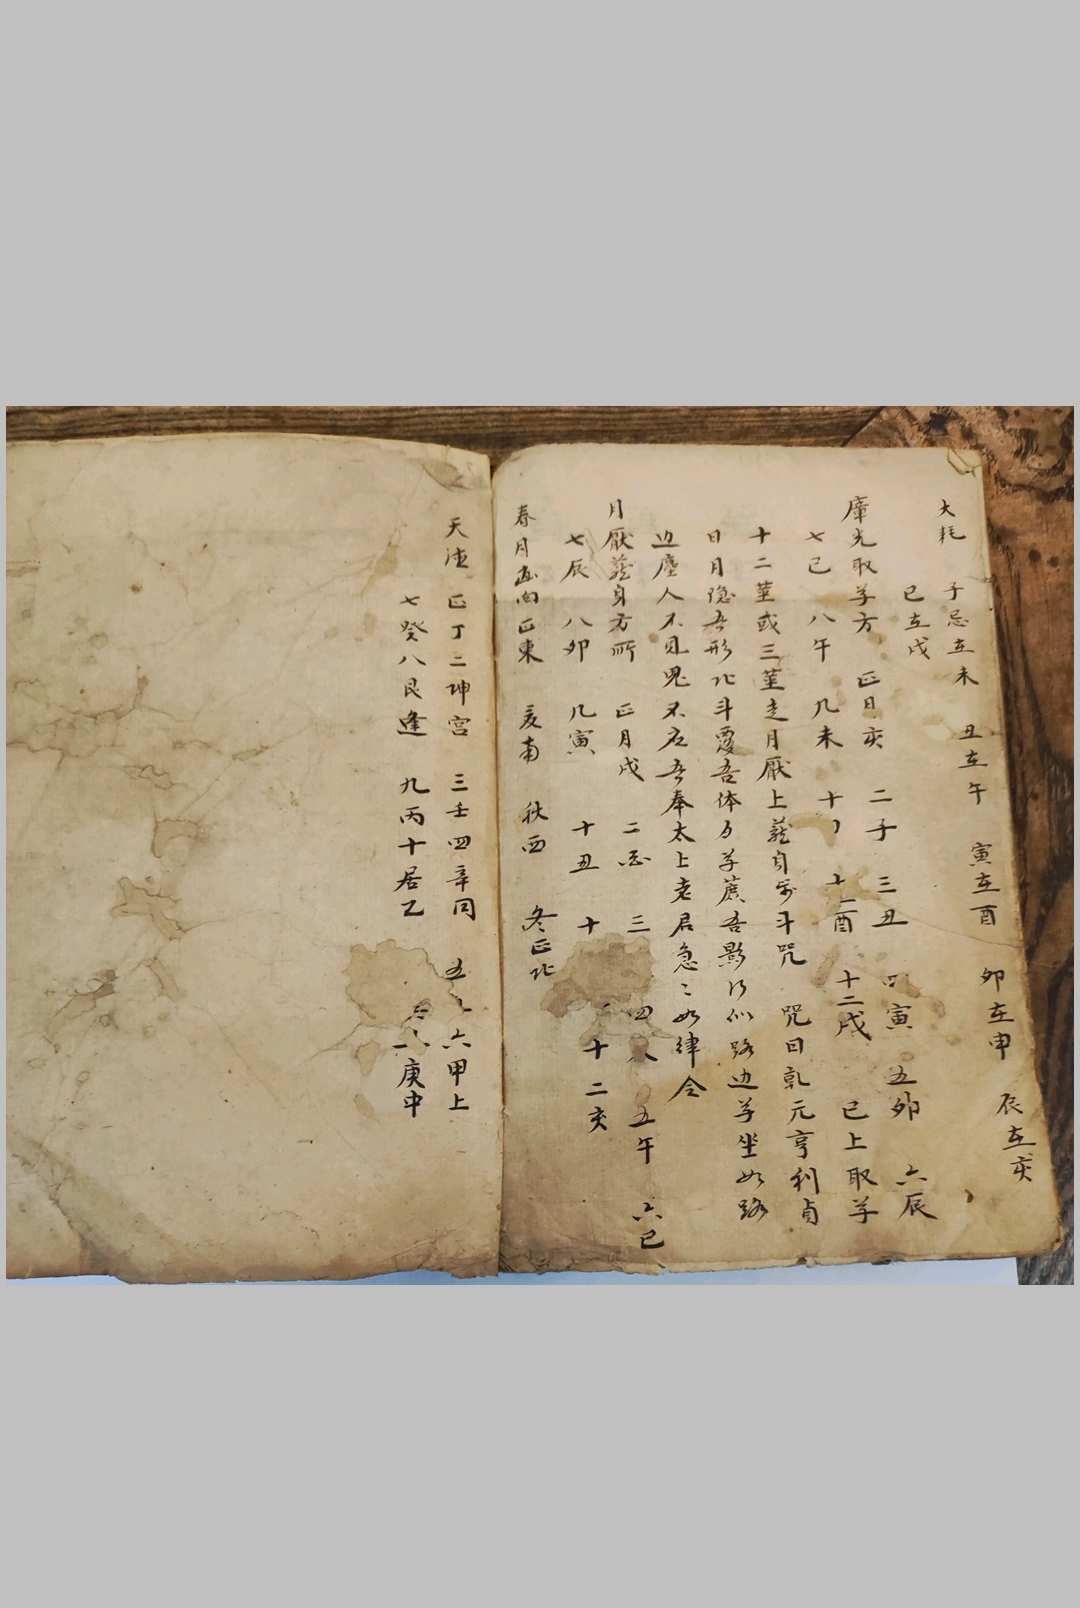 大耗 子忌在未 丑在午 寅在酉 卯在申 辰在亥
巳在戌
庫先取草方 正日亥 二子 三丑 四寅 五卯 六辰
七巳 八午 几未 十 十一酉 十二戌 已上取草
十二莖或三莖走月厭上藏身 斗咒 咒曰乹元亨利貞
日月隐吾形北斗覆吾体力草蔗吾影 似路边草坐如路
边塵人不見鬼不 吾奉太上老君急〻如律令
月厭藏身方所 正月戌 二 三 四 五午 六巳
七辰 八卯 几寅 十丑 十 十二亥
春月面向正東 夏南 秋西 冬正北
天德 正丁二坤宫 三壬四辛同 五 六甲上
七癸八艮逢 九丙十居乙 庚中